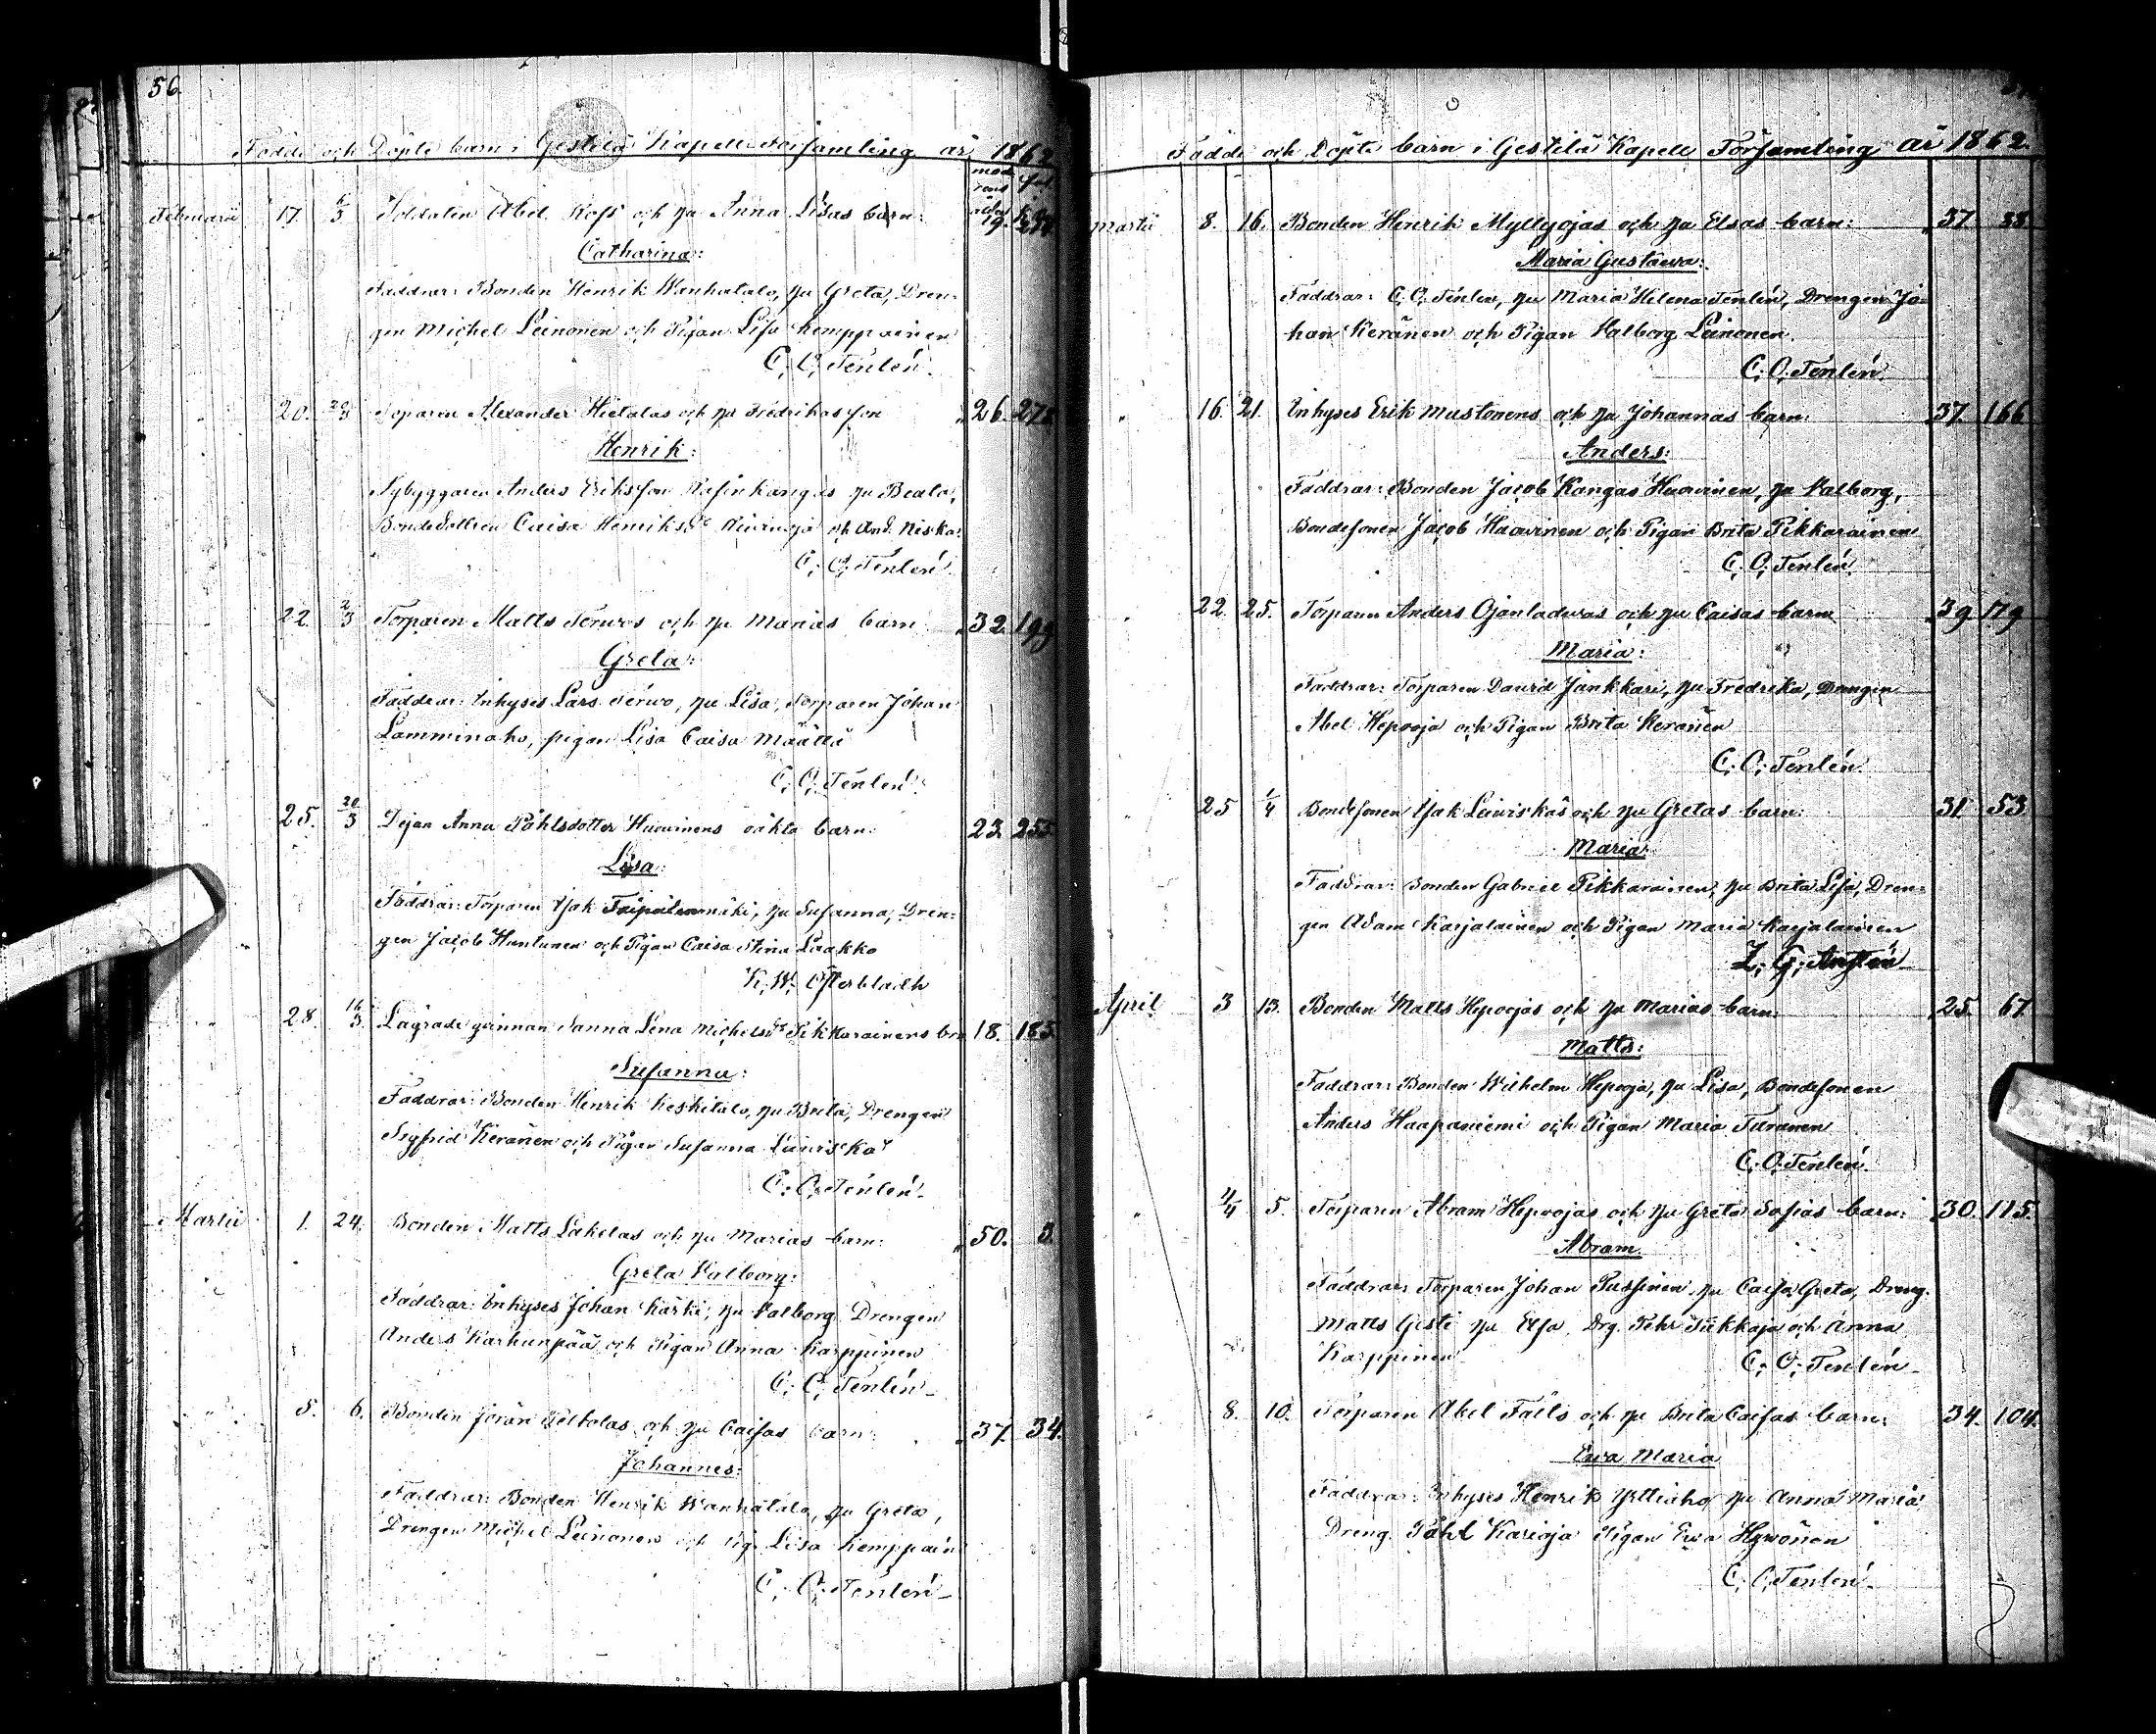 56.
Födde och Döpte barn i Gestilä Kapell Församling år 1862
mod rens ålder fol.
Februarii 17. 6/3 Soldaten Abel Rofs och hu Anna Lisas barn: 19.
Catharina:
Faddrar: Bonden Henrik Wanhatalo, hu Greta, Dren-
gen Michel Leinonen och Pigan Lisa Kemppainen
C. O. Tenlén.
" 20. 20/3 Torparen Alexander Hietalas och hu Fredrikas son 26. 275
Henrik:
Nybyggaren Anders Eriksson hu Beata,
Bondedottren Caisa Henriksdr och And. Niska.
C. O. Tenlén.
22. 2/3 Torparen Matts Terwos och hu Marias barn 32. 199
Greta:
Faddrar: Inhyses Lars Terwo, hu Lisa, Torparen Johan
Lamminaho, pigan Lisa Caisa Määttä
C. O. Tenlén.
25. 20/3 Dejan Anna Påhlsdotter Huowinens oäkta barn: 23. 255
Lisa:
Faddrar: Torparen Isak Taipaleenmäki, hu Susanna, Dren-
gen Jacob Huntunen och Pigan Caisa Stina Laakko
K. W. Österbladh
" 28. 16/3 Lägrade qvinnan Sanna Lena Michelsdr Pikkarainens brn 18. 185.
Susanna:
Faddrar: Bonden Henrik Keskitalo, hu Brita, Drengen
Sigfrid Keränen och Pigan Susanna Leiwiska
C. O. Tenlén.
Martii 1. 24. Bonden Matts Lakelas och hu Marias barn: 50. 3.
Greta Valborg:
Faddrar: Inhyses Johan Kärki, hu Valborg Drengen
Anders Karhunpää och Pigan Anna Karppinen
C. O. Tenlén.
" 5. 6. Bonden Jöran och hu Caisas barn: 37. 34.
Johannes:
Faddrar: Bonden Henrik Wanhatalo, hu Greta,
Drengen Michel Leinonen och Pig. Lisa Kemppain
C. O. Tenlén.
Födde och Döpte barn i Gestilä Kapell Församling år 1862.
Martii 8. 16. Bonden Henrik Myllyojas och hu Elsas barn: 37. 38.
Maria Gustawa:
Faddrar: C. O. Tenlen, hu Maria Helena Tenlén, Drengen Jo-
han Keränen och Pigan Valborg Leinonen.
C. O. Tenlén.
" 16. 21. Inhyses Erik Mustonens och hu Johannas barn: 37. 166
Anders:
Faddrar: Bonden Jacob Kangas Huowinen, hu Valborg,
Bondesonen Jacob Haowinen och Pigan Brita Pikkarainen
C. O. Tenlén.
" 22. 25. Torparen Anders Ojanladwas och hu Caisas barn 39. 179
Maria:
Faddrar: Torparen Dawid Jankkari, hu Fredrika, Drengen
Abel Hepooja och Pigan Brita Keränen
C. O. Tenlén.
" 25 1/4 Bondesonen Isak Leiwiskäs och hu Gretas barn: 31. 53
Maria
Faddrar: Bonden Gabriel Pikkarainen, hu Brita Lisa, Dren-
gen Adam Karjalainen och Pigan Maria Karjalainen
April 3 13. Bonden Matts Hepoojas och hu Marias barn: 25. 67.
Matts:
Faddrar: Bonden Wilhelm Hepooja, hu Lisa, Bondesonen
Anders Haapaniemi och Pigan Maria Turanen
C. O. Tenlén.
" 4/4 5. Torparen Abram Hepoojas och hu Greta Sofias barn: 30. 115.
Abram.
Faddrar: Torparen Johan Tussinen, hu Caisa Greta, Dreng.
Matts Gesti hu Elsa. Drg. Pehr Tikkaja och Anna
Karppinen C. O. Tenlén.
8. 10. Torparen Abel Fälls och hu Brita Caisas barn: 34. 104.
Ewa Maria
Faddrar: Inhyses Henrik Yrttiaho, hu Anna Maria
Dreng. Påhl Karioja Pigan Ewa Hywönen
C. O. Tenlén.